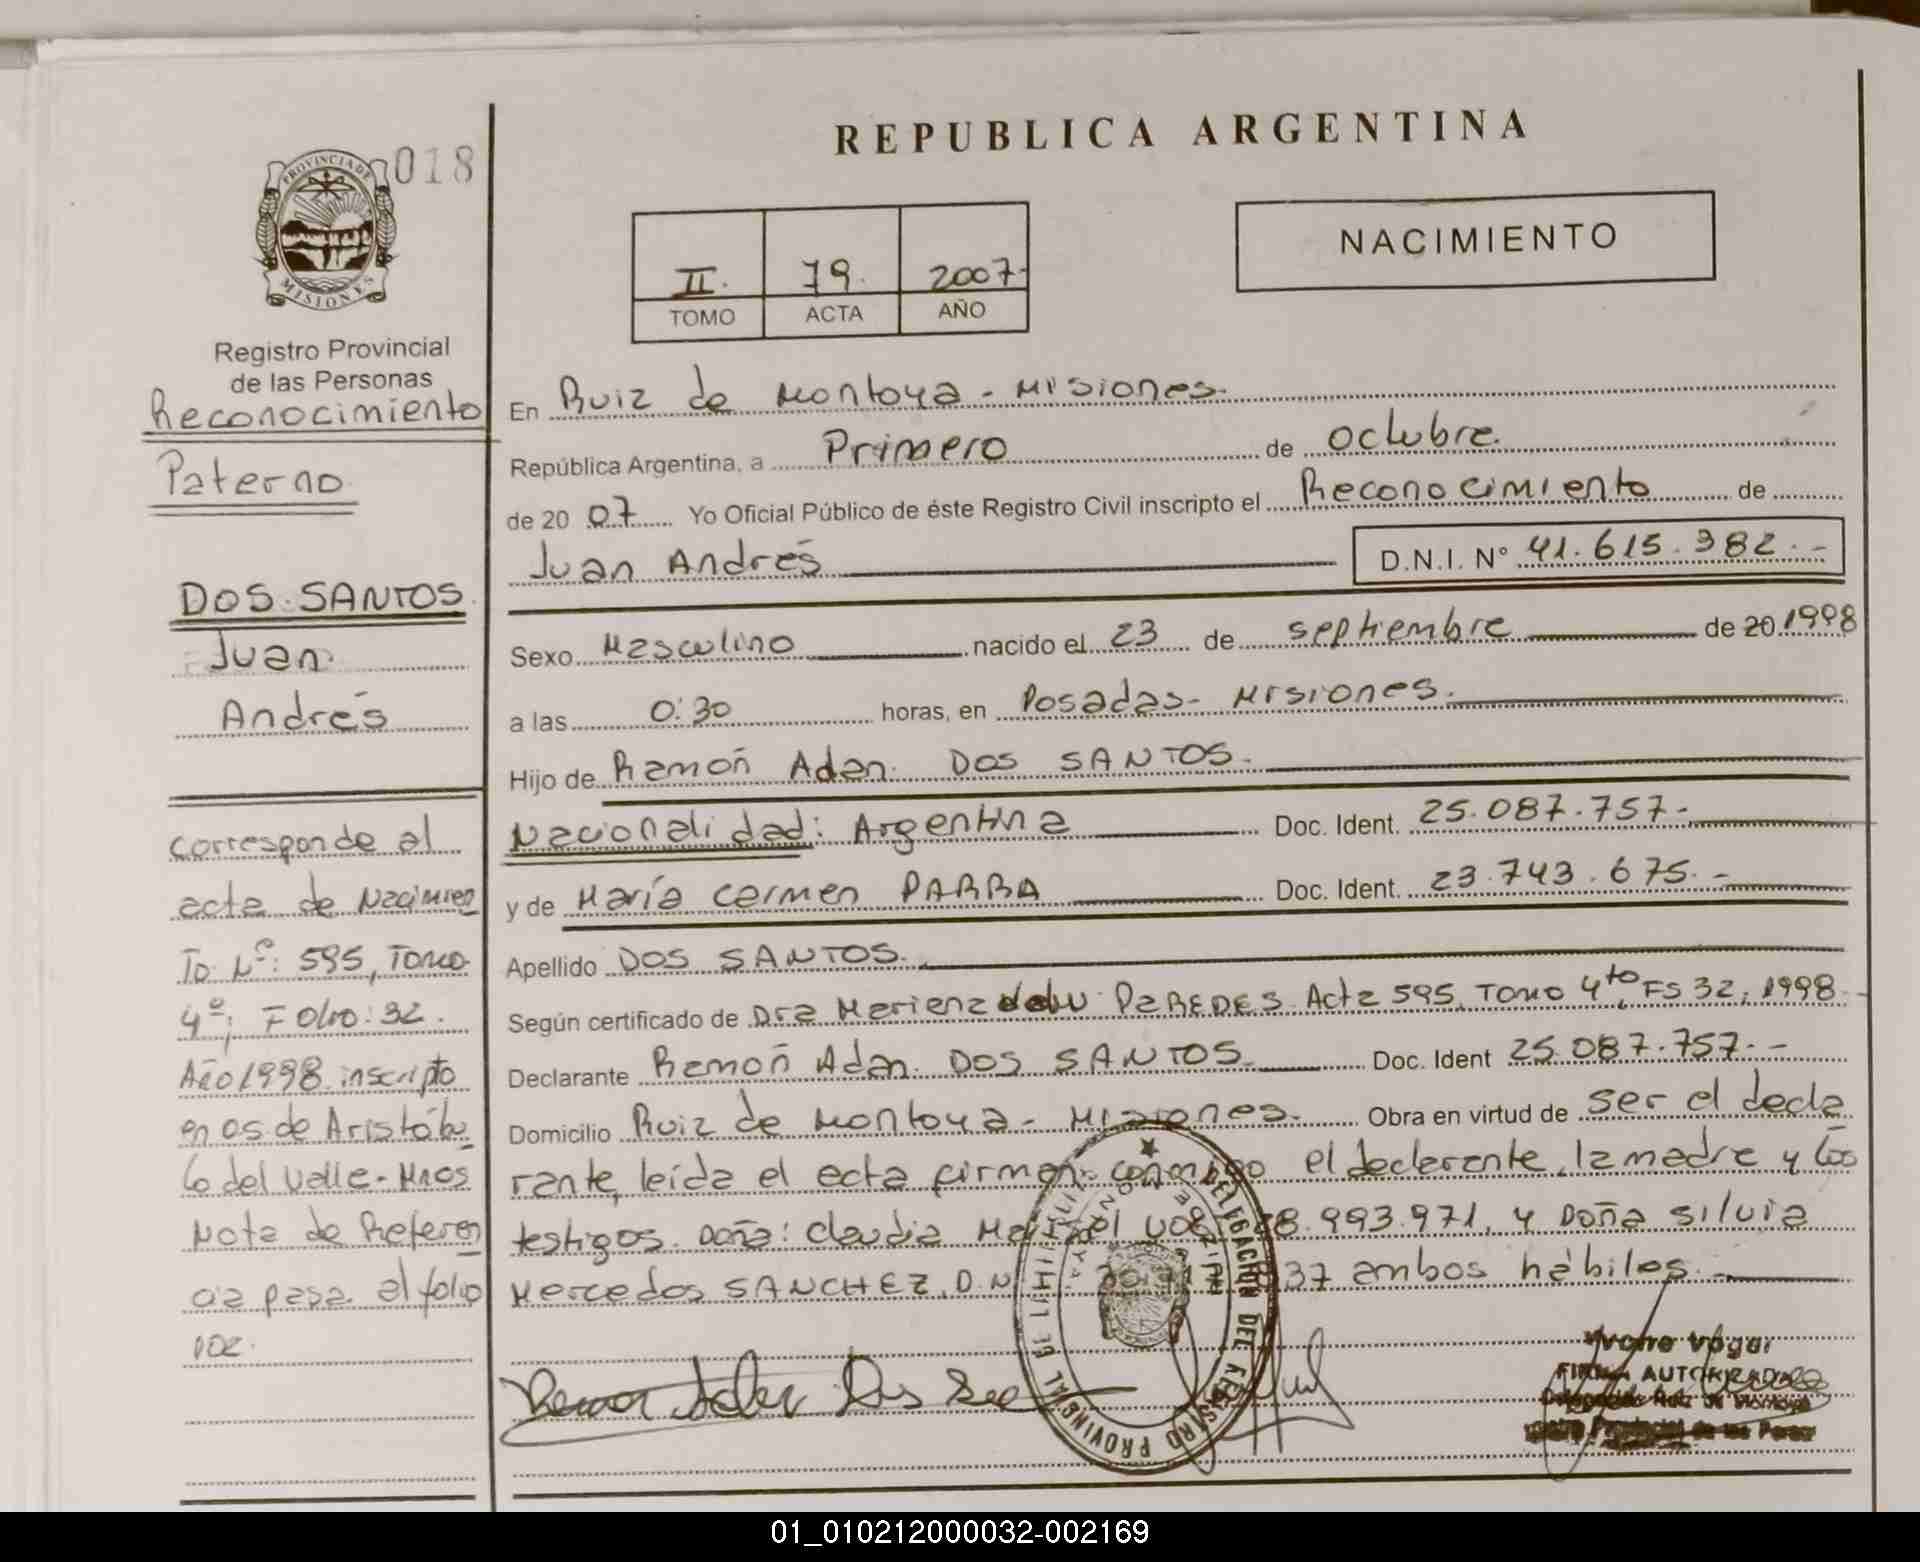 018
PROVINCIA DE
MISIONES
Registro Provincial
de las Personas
Reconocimiento
Paterno
DOS SANTOS
Juan
Andrés
corresponde al
acta de Nacimien
to Nº: 595, Tomo
4º; Folio: 32.
Año 1998 inscripto
en os de Aristóbu
lo del Valle - Mnes
Nota de Referen
cia pasa al folio
102.
REPUBLICA ARGENTINA
II. 79. 2007-
TOMO ACTA AÑO
NACIMIENTO
En Ruiz de Montoya - Misiones.
República Argentina, a Primero de octubre.
de 20 07 Yo Oficial Público de éste Registro Civil inscripto el Reconocimiento de
Juan Andrés D.N.I. Nº 41.615.382.-
Sexo Masculino nacido el 23 de septiembre de 20 1998
a las 0:30 horas, en Posadas - Misiones.
Hijo de Ramón Adan DOS SANTOS.
Nacionalidad: Argentina Doc. Ident. 25.087.757-
y de María Carmen PARRA Doc. Ident. 23.743.675.-
Apellido DOS SANTOS.
Según certificado de Dra PAREDES. Acta 595, Tomo 4to, Fs 32, 1998
Declarante Ramón Adan DOS SANTOS. Doc. Ident 25.087.757.-
Domicilio Ruiz de Montoya - Misiones. Obra en virtud de ser el decla
rante, leída el acta firman conmigo el declarante, la madre y los
testigos. Doña: Claudia 993.971, y Doña Silvia
Mercedes SANCHEZ, D.N 37 ambos hábiles.-
DELEGACION DEL REGISTRO PROVINCIAL DE
Yvone Vogar
FIRMA AUTORIZADA
Delegación Ruiz de Montoya
Provincial de las Person
01_010212000032-002169